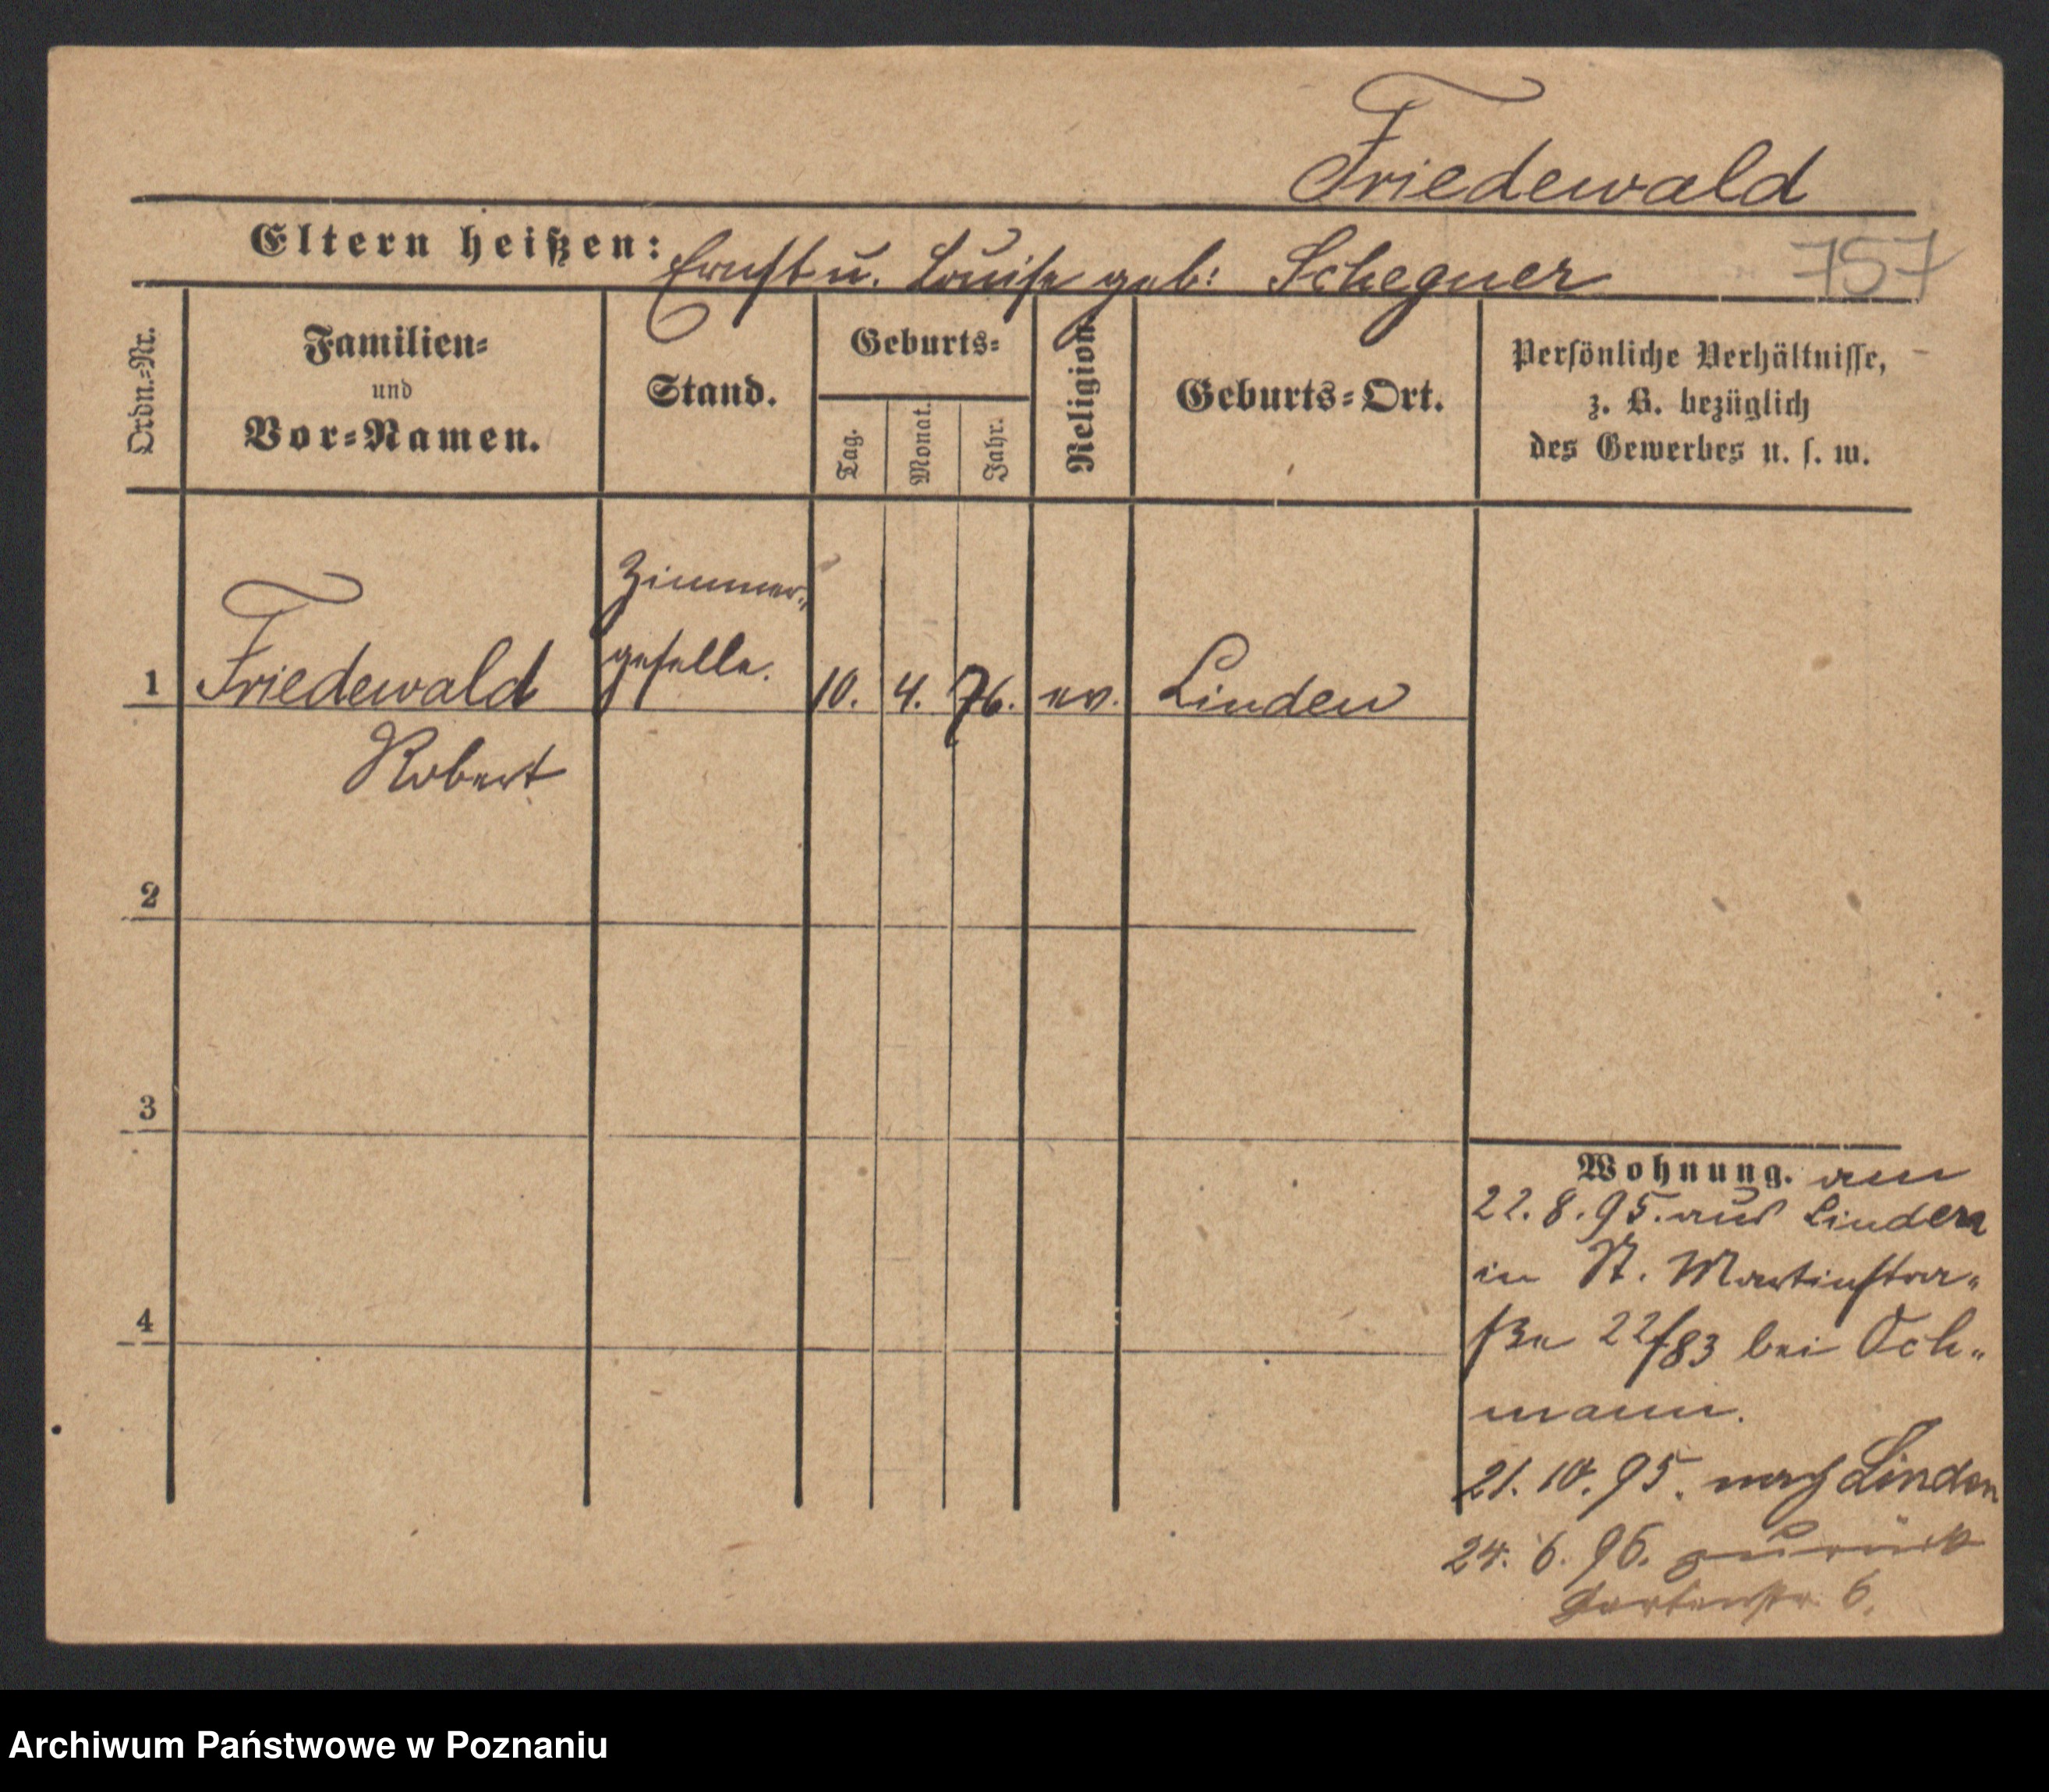 Friedewald
Eltern heißen: Ernst u. Louise geb: Schegner
757
Ordn.-Nr.
Familien-
und
Vor-Namen.
Stand.
Geburts-
Tag.
Monat.
Jahr.
Religion.
Geburts-Ort.
Persönliche Verhältnisse,
z. B. bezüglich
des Gewerbes u. s. w.
Zimmer-
1 Friedewald geselle. 10. 4. 76. ev. Linden
Robert
2
3
4
Wohnung. am
22.8.95. aus Linden
in St. Martinstra-
ße 22/83 bei Och-
mann.
21. 10. 95. nach Linden
24. 6. 96. zurück
Gartenstr. 6.
Archiwum Państwowe w Poznaniu